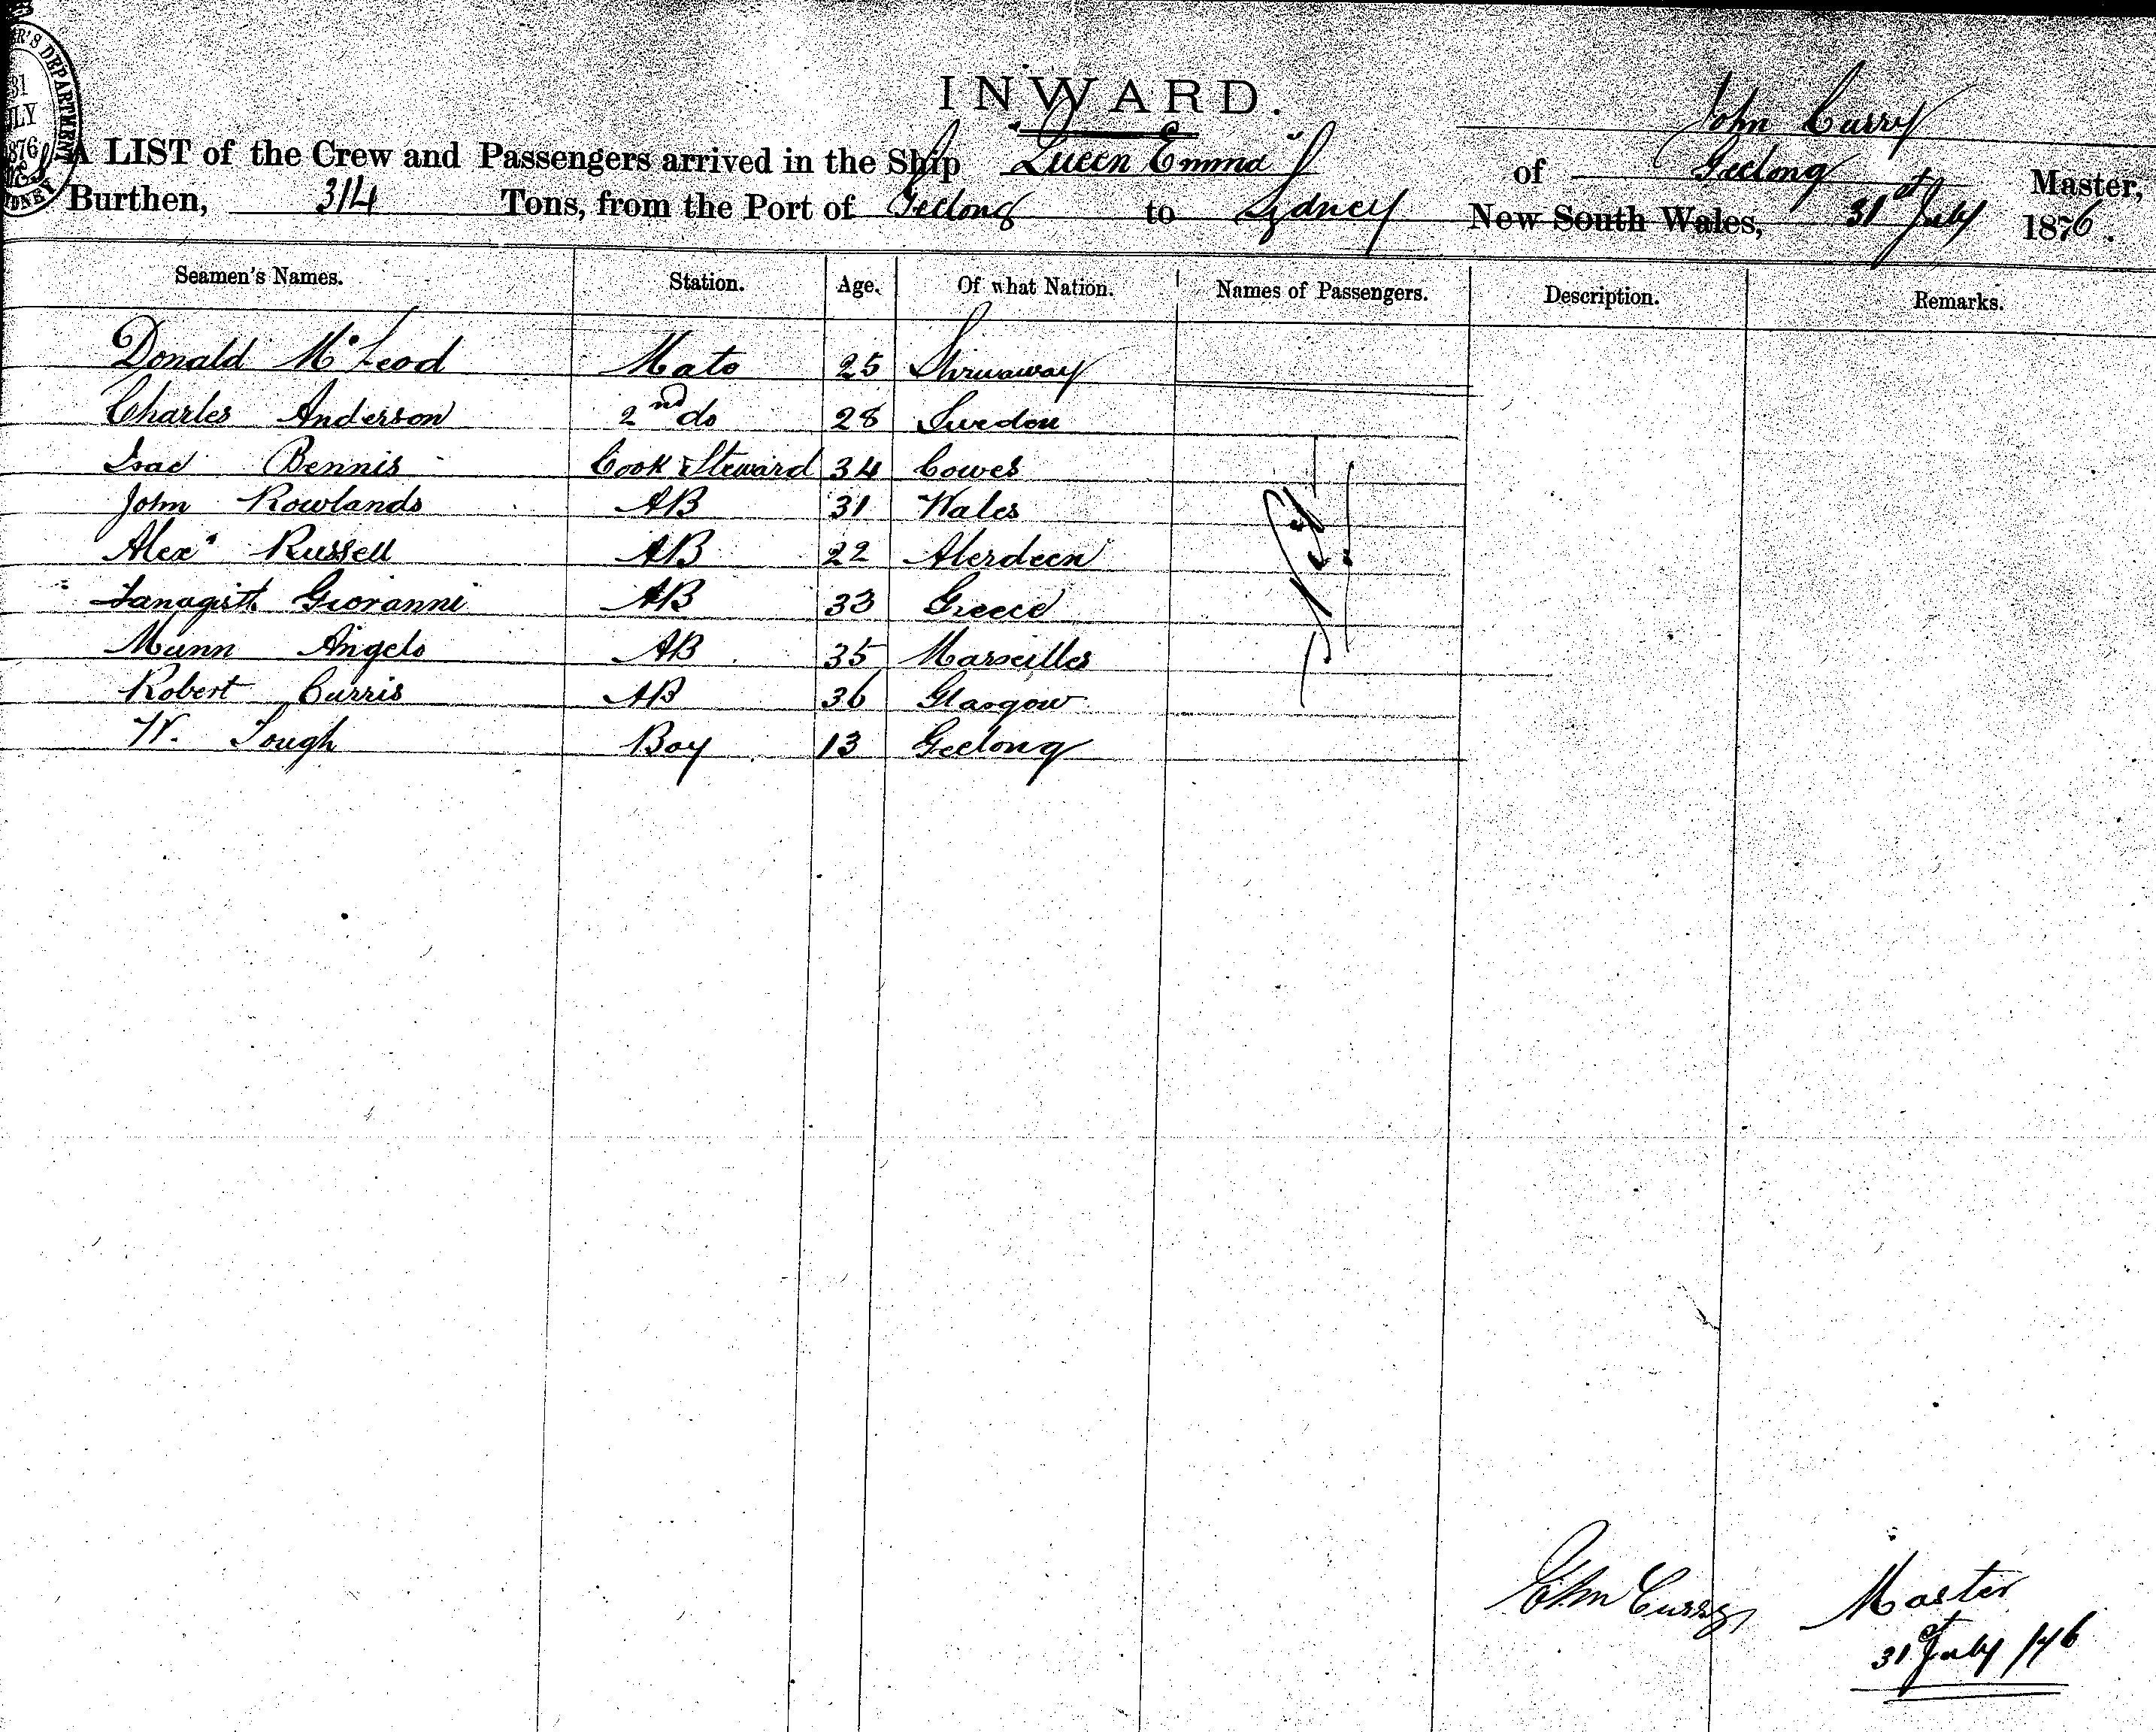 ER'S DEPARTMENT
31
LY
876
DNEY
INWARD.
John Curry
A LIST of the Crew and Passengers arrived in the Ship "Queen Emma" of Geelong Master,
Burthen, 314 Tons, from the Port of Geelong to Sydney New South Wales, 31st July 1876.
Seamen's Names. Station. Age. Of what Nation. Names of Passengers. Description. Remarks.
Donald McLeod Mate 25
Charles Anderson 2nd do 28 Sweden
Isac Bennis Cook & Steward 34 Cowes
John Rowlands AB 31 Wales
Alexr Russell AB 22 Aberdeen
Giovanni AB 33 Greece
Munn Angelo AB 35 Marseilles
Robert Curris AB 36 Glasgow
W. Tough Boy 13 Geelong
John Curry Master
31st July /76